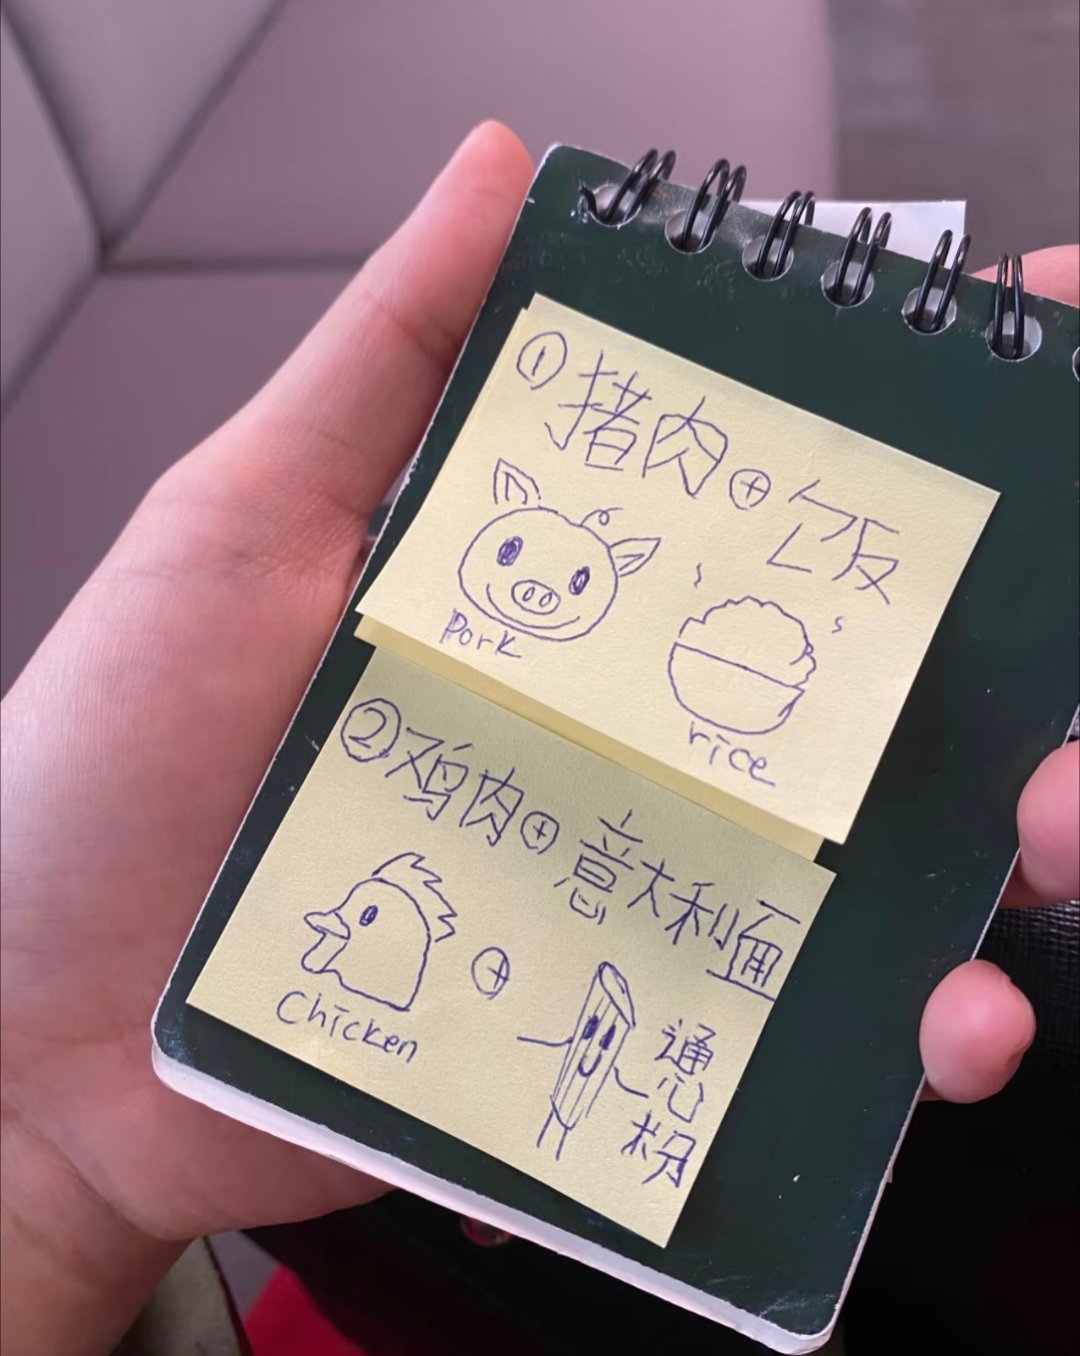 ① 猪肉⊕饭
Pork
rice
② 鸡肉⊕意大利面
Chicken
⊕
通心粉